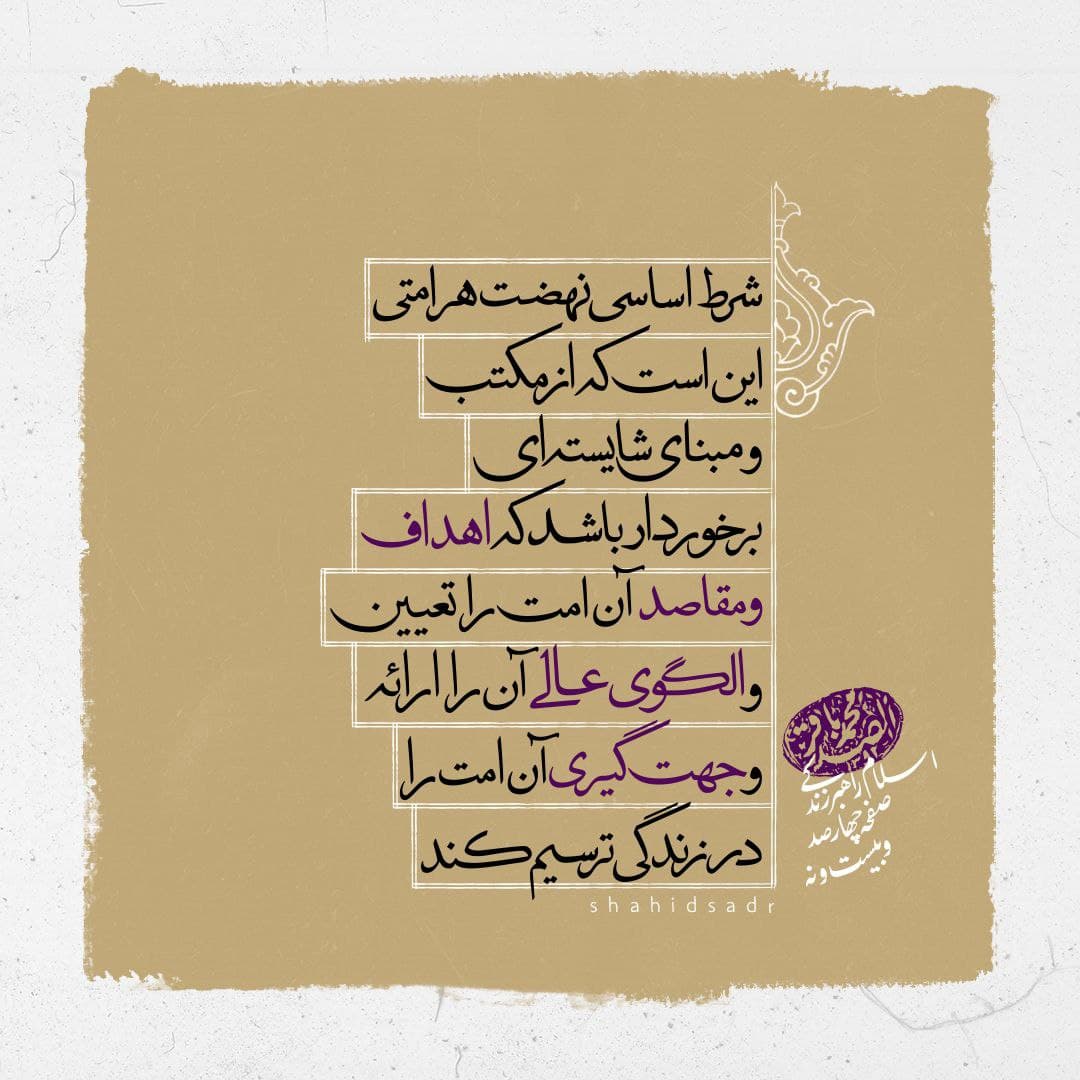 شرط اساسی نهضت هر امتی
این است که از مکتب
و مبنای شایسته‌ای
برخوردار باشد که اهداف
و مقاصد آن امت را تعیین
و الگوی عالی آن را ارائه
و جهت‌گیری آن امت را
در زندگی ترسیم کند
اسلام راهبر زندگی
صفحه چهارصد
و بیست و نه
shahidsadr